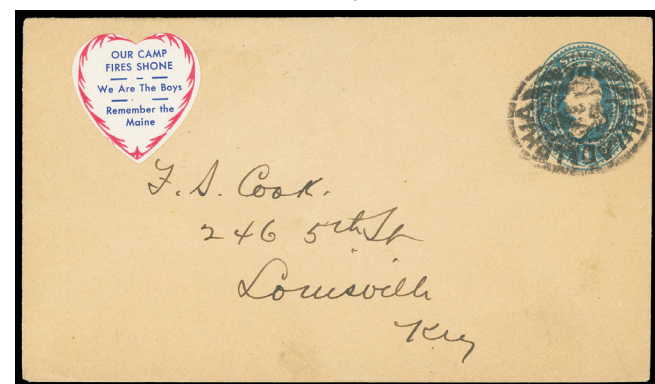 OUR CAMP
FIRES SHONE
We Are The Boys
Remember the
Maine
F. S. Cook.
246 5th St
Louisville
Ky